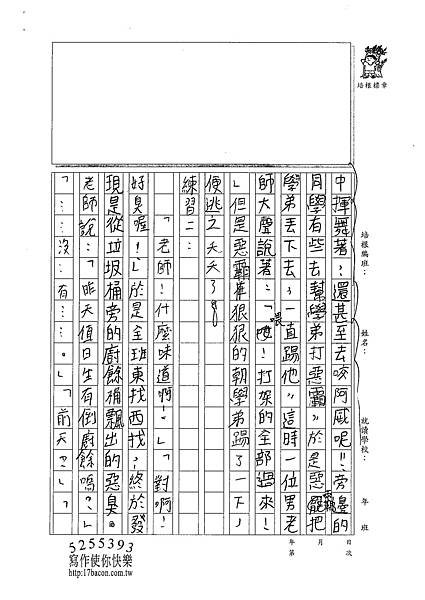 培根標章
培根編班：
姓名：
就讀學校：
年　班
年　月　日
第　次
中揮舞著；還甚至去咬阿威呢!!旁邊的
同學有些去幫學弟打惡霸，於是惡霸把
學弟丟下去，一直踢他，這時一位男老
師大聲說著：「喂！打架的全部過來！
」但是惡霸卻狠狠的朝學弟踢了一下，
便逃之夭夭了。
練習二：
「老師！什麼味道啊！」「對啊！
好臭喔！」於是全班東找西找，終於發
現是從垃圾桶旁的廚餘桶飄出的惡臭。
老師說：「昨天值日生有倒廚餘嗎？」
「……沒……有……。」「前天？」「
5255393
寫作使你快樂
http://17bacon.com.tw